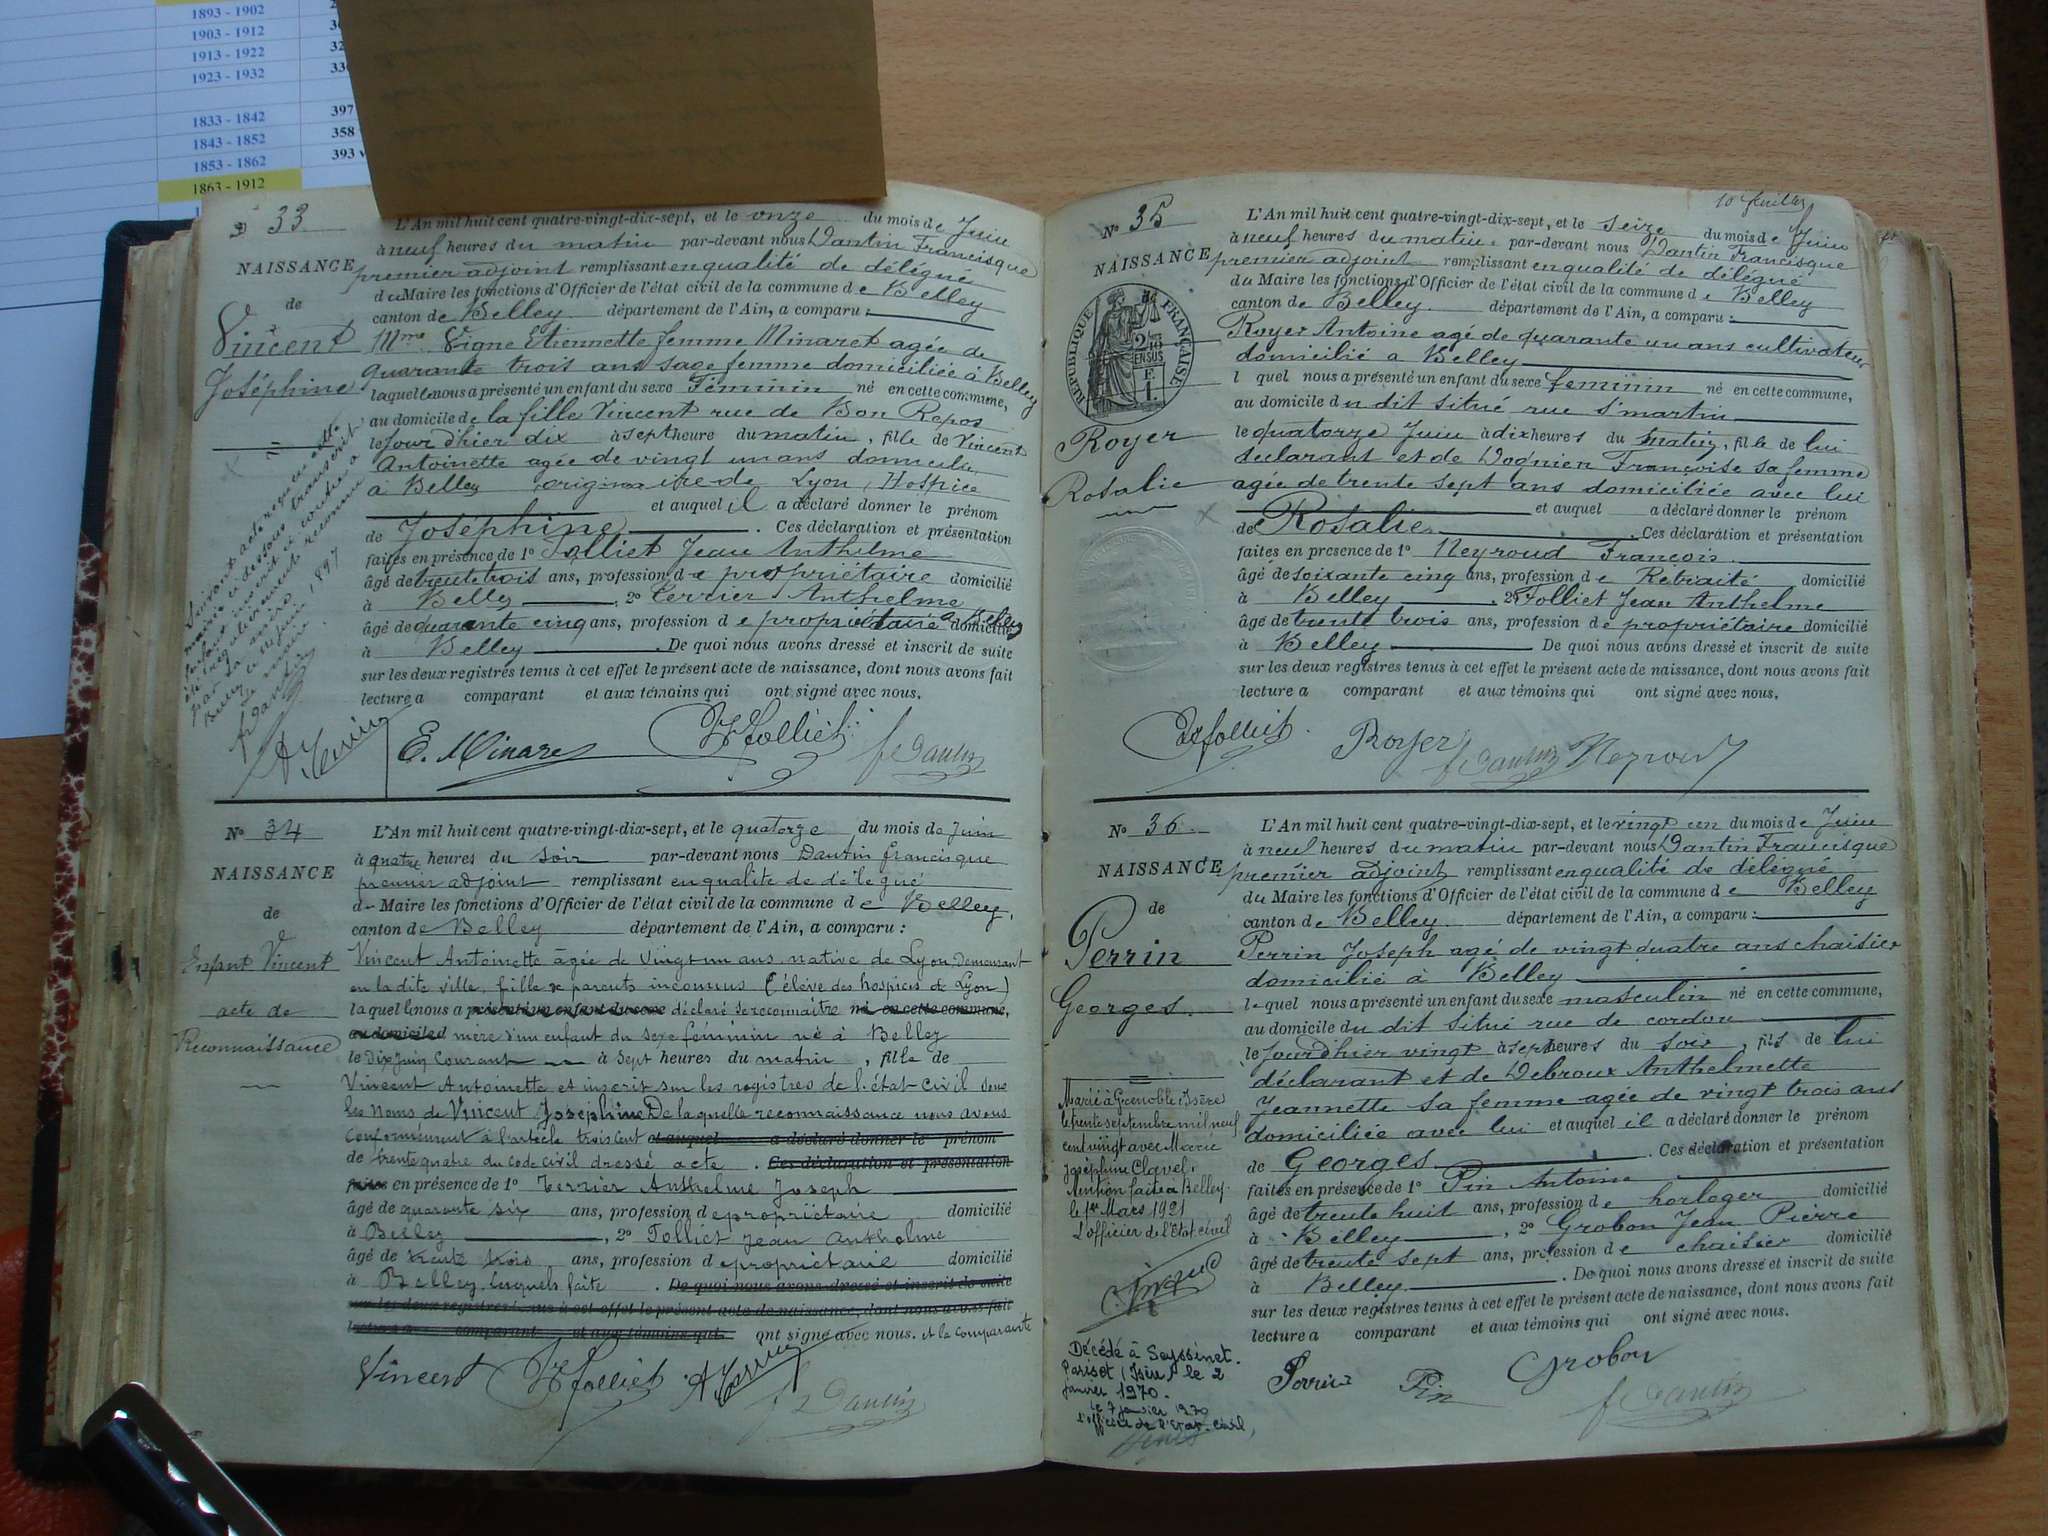 1893 - 1902
1903 - 1912
1913 - 1922
1923 - 1932
1833 - 1842
397
1843 - 1852
358
1853 - 1862
393 v
1863 - 1912
33
NAISSANCE
de
Vincent
Joséphine
L'An mil huit cent quatre-vingt-dix-sept, et le onze du mois de Juin
à neuf heures du matin par-devant nous Dantin Francisque
premier adjoint remplissant en qualité de délégué
du Maire les fonctions d'Officier de l'état civil de la commune de Belley
canton de Belley département de l'Ain, a comparu :
Mme Vigne Etiennette femme Minaret agée de
quarante trois ans sage femme domiciliée à Belley
laquelle nous a présenté un enfant du sexe Féminin né en cette commune,
au domicile de la fille Vincent rue de Bon Repos
le jour d'hier dix à sept heure du matin, fille de Vincent
Antoinette agée de vingt un ans domiciliée
à Belley originaire de Lyon, Hospice
et auquel il a déclaré donner le prénom
de Joséphine. Ces déclaration et présentation
faites en présence de 1° Tolliet Jean Anthelme
âgé de trente trois ans, profession de propriétaire domicilié
à Belley, 2° Terrier Anthelme
âgé de quarante cinq ans, profession de propriétaire à Belley domicilié
à Belley. De quoi nous avons dressé et inscrit de suite
sur les deux registres tenus à cet effet le présent acte de naissance, dont nous avons fait
lecture a comparant et aux témoins qui ont signé avec nous.
Suivant acte reçu en cette
mairie ci dessous transcrit
l'enfant inscrit ci contre a
été reconnu
par sa mère
Belley le 14 juin 1897
Le maire
f Dantin
A Terrier E. Minaret JA Tolliet f Dantin
N° 34
NAISSANCE
de
Enfant Vincent
acte de
Reconnaissance
L'An mil huit cent quatre-vingt-dix-sept, et le quatorze du mois de Juin
à quatre heures du soir par-devant nous Dantin francisque
premier adjoint remplissant en qualité de délégué
du Maire les fonctions d'Officier de l'état civil de la commune de Belley,
canton de Belley département de l'Ain, a comparu :
Vincent Antoinette âgée de vingt un ans native de Lyon Demeurant
en la dite ville, fille de parents inconnus (élève des hospices de Lyon)
laquelle nous a présenté un enfant du sexe déclaré se reconnaître né en cette commune,
au domicile d mère d'un enfant du sexe féminin né à Belley
le Dix Juin Courant à Sept heures du matin, fille de
Vincent Antoinette et inscrit sur les registres de l'état civil sous
les Noms de Vincent Joséphine De laquelle reconnaissance nous avons
Conformément à l'article trois cent et auquel a déclaré donner le prénom
de trente quatre du Code civil dressé acte. Ces déclaration et présentation
faites en présence de 1° Terrier Anthelme Joseph
âgé de quarante six ans, profession de propriétaire domicilié
à Belley, 2° Tolliet Jean Anthelme
âgé de trente trois ans, profession de propriétaire domicilié
à Belley lecture faite. De quoi nous avons dressé et inscrit de suite
sur les deux registres tenus à cet effet le présent acte de naissance, dont nous avons fait
lecture a comparant et aux témoins qui ont signé avec nous. et la comparante
Vincent JA Tolliet A Terrier f Dantin
10 feuillet
N° 35
NAISSANCE
de
REPUBLIQUE FRANÇAISE
Royer
Rosalie
L'An mil huit cent quatre-vingt-dix-sept, et le seize du mois de Juin
à neuf heures du matin par-devant nous Dantin Francisque
premier adjoint remplissant en qualité de délégué
du Maire les fonctions d'Officier de l'état civil de la commune de Belley
canton de Belley département de l'Ain, a comparu :
Royer Antoine agé de quarante un ans cultivateur
domicilié a Belley
l quel nous a présenté un enfant du sexe feminin né en cette commune,
au domicile du dit situé rue St martin
le quatorze Juin à dix heures du matin, fille de lui
declarant et de Dognien Françoise sa femme
agée de trente sept ans domiciliée avec lui
et auquel a déclaré donner le prénom
de Rosalie. Ces déclaration et présentation
faites en présence de 1° Neyroud François
âgé de soixante cinq ans, profession de Retraité domicilié
à Belley, 2° Tolliet Jean Anthelme
âgé de trente trois ans, profession de propriétaire domicilié
à Belley De quoi nous avons dressé et inscrit de suite
sur les deux registres tenus à cet effet le présent acte de naissance, dont nous avons fait
lecture a comparant et aux témoins qui ont signé avec nous.
JA Tolliet Royer f Dantin Neyroud
N° 36
NAISSANCE
de
Perrin
Georges
L'An mil huit cent quatre-vingt-dix-sept, et le vingt un du mois de Juin
à neuf heures du matin par-devant nous Dantin Francisque
premier adjoint remplissant en qualité de délégué
du Maire les fonctions d'Officier de l'état civil de la commune de Belley
canton de Belley département de l'Ain, a comparu :
Perrin Joseph agé de vingt quatre ans chaisier
domicilié à Belley
lequel nous a présenté un enfant du sexe masculin né en cette commune,
au domicile du dit situé rue de cordon
le jour d'hier vingt à sept heures du soir, fils de lui
déclarant et de Debroux Anthelmette
Jeannette sa femme agée de vingt trois ans
domiciliée avec lui et auquel il a déclaré donner le prénom
de Georges. Ces déclaration et présentation
faites en présence de 1° Pin Antoine
âgé de trente huit ans, profession de horloger domicilié
à Belley, 2° Grobon Jean Pierre
âgé de trente sept ans, profession de chaisier domicilié
à Belley. De quoi nous avons dressé et inscrit de suite
sur les deux registres tenus à cet effet le présent acte de naissance, dont nous avons fait
lecture a comparant et aux témoins qui ont signé avec nous.
Marié à Grenoble (Isère)
le trente septembre mil neuf
cent vingt avec Marie
Joséphine Clavel.
Mention faite à Belley
le 1er Mars 1921
L'officier de l'Etat civil
Décédé à Seyssinet.
Pariset (Isère) le 2
janvier 1970.
Le 7 janvier 1970
L'officier de l'Etat-Civil,
Perrin Pin Grobon f Dantin